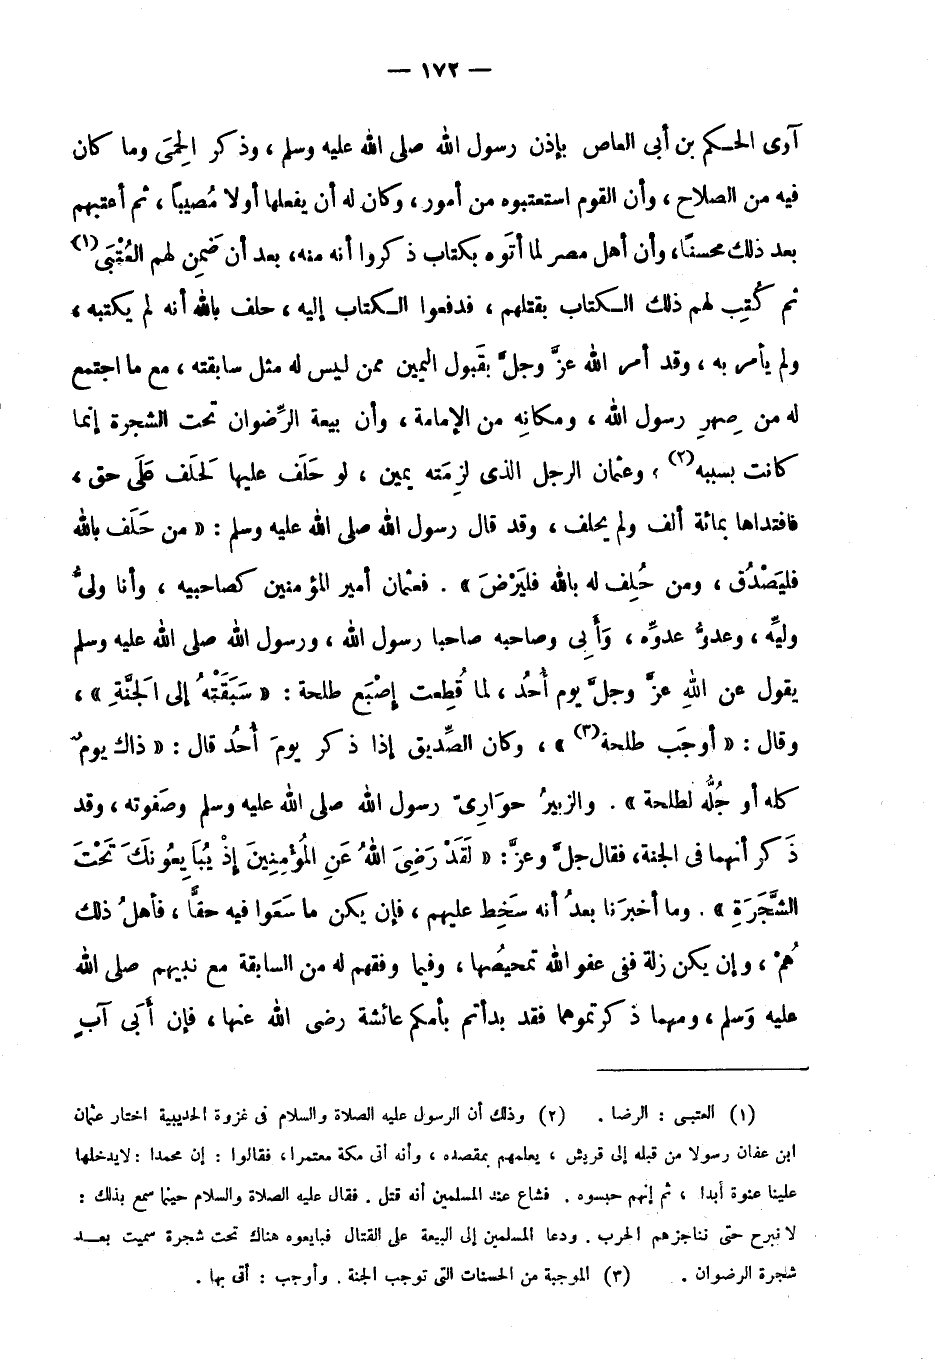 — ١٧٢ —
آوى الحكم بن أبى العاص بإذن رسول الله صلى الله عليه وسلم ، وذكر الحِمَى وما كان
فيه من الصلاح ، وأن القوم استعتبوه من أمور ، وكان له أن يفعلها أولا مُصيباً ، ثم أعتبهم
بعد ذلك محسناً ، وأن أهل مصر لما أتَوه بكتاب ذكروا أنه منه ، بعد أن ضَمِن لهم العُتْبَى (١)
ثم كُتِب لهم ذلك الكتاب بقتلهم ، فدفعوا الكتاب إليه ، حلف بالله أنه لم يكتبه ،
ولم يأمر به ، وقد أمر الله عزَّ وجلَّ بقَبول اليمين ممن ليس له مثل سابقته ، مع ما اجتمع
له من صِهرِ رسول الله ، ومكانِه من الإمامة ، وأن بيعة الرِّضوان تحت الشجرة إنما
كانت بسببه (٢) ، وعثمان الرجل الذى لزِمَته يمين ، لو حَلَف عليها لَحَلَف عَلَى حق ،
فافتداها بمائة ألف ولم يحلف ، وقد قال رسول الله صلى الله عليه وسلم : « من حَلَف بالله
فليَصْدُق ، ومن حُلِف له بالله فليَرْضَ » . فعثمان أمير المؤمنين كصاحبيه ، وأنا ولىُّ
وليِّه ، وعدوُّ عدوِّه ، وَأَبى وصاحبه صاحبا رسول الله ، ورسول الله صلى الله عليه وسلم
يقول عن اللهِ عزَّ وجلَّ يوم أُحُد ، لما قُطِعت إصْبَع طلحة : « سَبَقَتْهُ إلى الجَنَّةِ » ،
وقال : « أوجَب طلحة (٣) » ، وكان الصِّديق إذا ذكر يومَ أُحُد قال : « ذاك يومٌ
كله أو جُلُّه لطلحة » . والزبيرُ حوَارِىّ رسول الله صلى الله عليه وسلم وصَفوته ، وقد
ذَكر أنهما فى الجنة ، فقال جلَّ وعزَّ : « لَقَدْ رَضِىَ اللهُ عَنِ المُؤْمِنِينَ إِذْ يُبَايِعُونَكَ تَحْتَ
الشَّجَرَةِ » . وما أخبرَنا بعدُ أنه سَخِط عليهم ، فإن يكن ما سَعَوا فيه حقًّا ، فأهلُ ذلك
هُمْ ، وإن يكن زلة ففى عفو الله تمحيصُها ، وفيما وفقهم له من السابقة مع نبيهم صلى الله
عليه وَسلم ، ومهما ذكرتموهما فقد بدأتم بأمكم عائشة رضى الله عنها ، فإن أَبَى آبٍ
(١) العتبى : الرضا . (٢) وذلك أن الرسول عليه الصلاة والسلام فى غزوة الحديبية اختار عثمان
ابن عفان رسولا من قبله إلى قريش ، يعلمهم بمقصده ، وأنه أتى مكة معتمرا ، فقالوا : إن محمدا : لا يدخلها
علينا عنوة أبدا ، ثم إنهم حبسوه . فشاع عند المسلمين أنه قتل . فقال عليه الصلاة والسلام حينما سمع بذلك :
لا نبرح حتى نناجزهم الحرب . ودعا المسلمين إلى البيعة على القتال فبايعوه هناك تحت شجرة سميت بعد
شجرة الرضوان . (٣) الموجبة من الحسنات التى توجب الجنة . وأوجب : أتى بها .